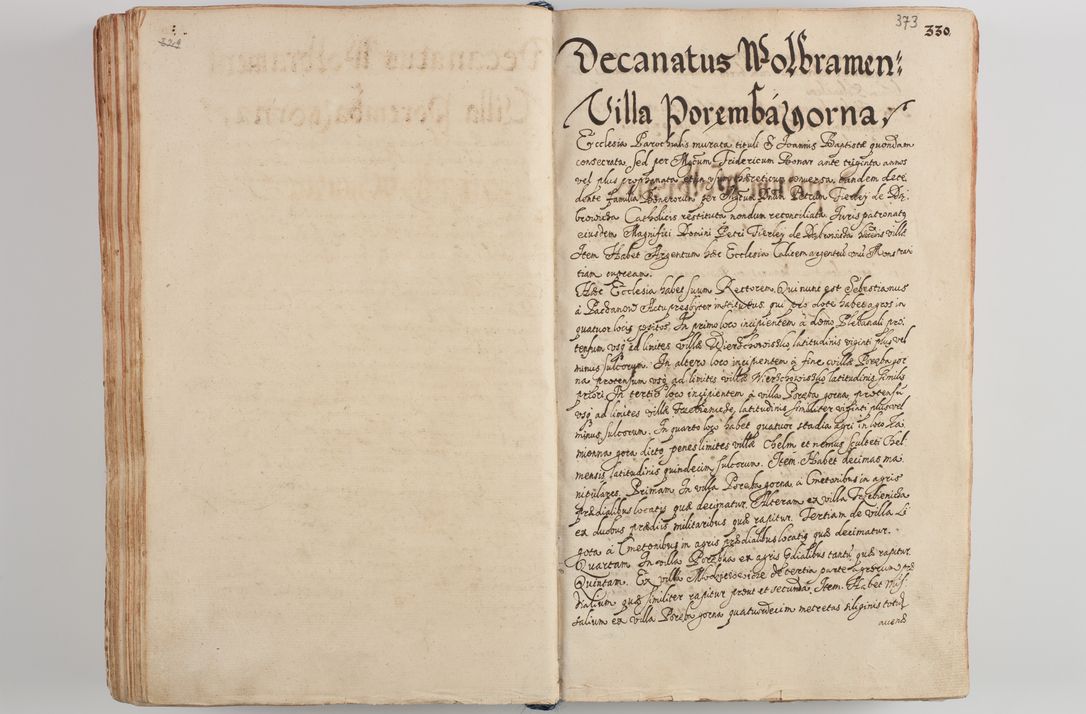 373
330.
Decanatus Wolbramen:
Villa Poremba gorna,
Ecclesia Parochialis murata tituli S Joannis Baptistæ quondam
consecrata, sed per Mgcum Fridericum Bonar ante triginta annos
vel plus prophanata et in usum hæreticum conversa, tandem dece
dente familia Bonerorum per Mgcum Dnum Petrum
browicza Catholicis restituta nondum reconciliata Juris patronatq
eiusdem Magnifici Domini Petri de Dąbrowicza hæredis villæ
Item Habet Argentum hæc Ecclesia Calicem argenteũ unũ Monstran
tiam cupream.
Hæc Ecclesia habet suum Rectorem, Qui nunc est Sebestianus
à Paczanow Actu presbyter institutus, qui pro dote habet agros in
quatuor locis positos, In primo loco incipientem à domo Plebanali pro
tensum usq ad limites villæ latitudinis viginti plus vel
minus sulcorum. In altero loco incipientem à fine villæ Poręba gor
na protensum usq ad limites villæ latitudinis similis
priori. In tertio loco incipientem à villa Poręba gorna protensũ
usq ad limites villæ latitudinis similiter viginti plus vel
minus sulcorum. In quarto loco habet quatuor stadia agri in loco Ka
mionna gora dicto penes limites villæ Chelm et nemus sculteti Chel
mensis latitudinis quindecim sulcorum. Item Habet decimas ma
nipulares. Primam. In villa Poręba gorna à Cmetonibus in agris
prædialibus locatis quæ decimatur. Alteram ex villa
ex duobus prædiis militaribus quæ rapitur. Tertiam de villa Li
gota à Cmetonibus in agris prædialibus locatis quæ decimatur.
Quartam. In villa Porębka ex agris ṗdialibus tantũ quæ rapitur
Quintam. Ex villa de tertia parte agrorum præ
dialium quæ similiter rapitur prout et secunda. Item. Habet mis
salium ex villa Poręba gorna quatuordecim metretas siliginis totidẽ
avenæ